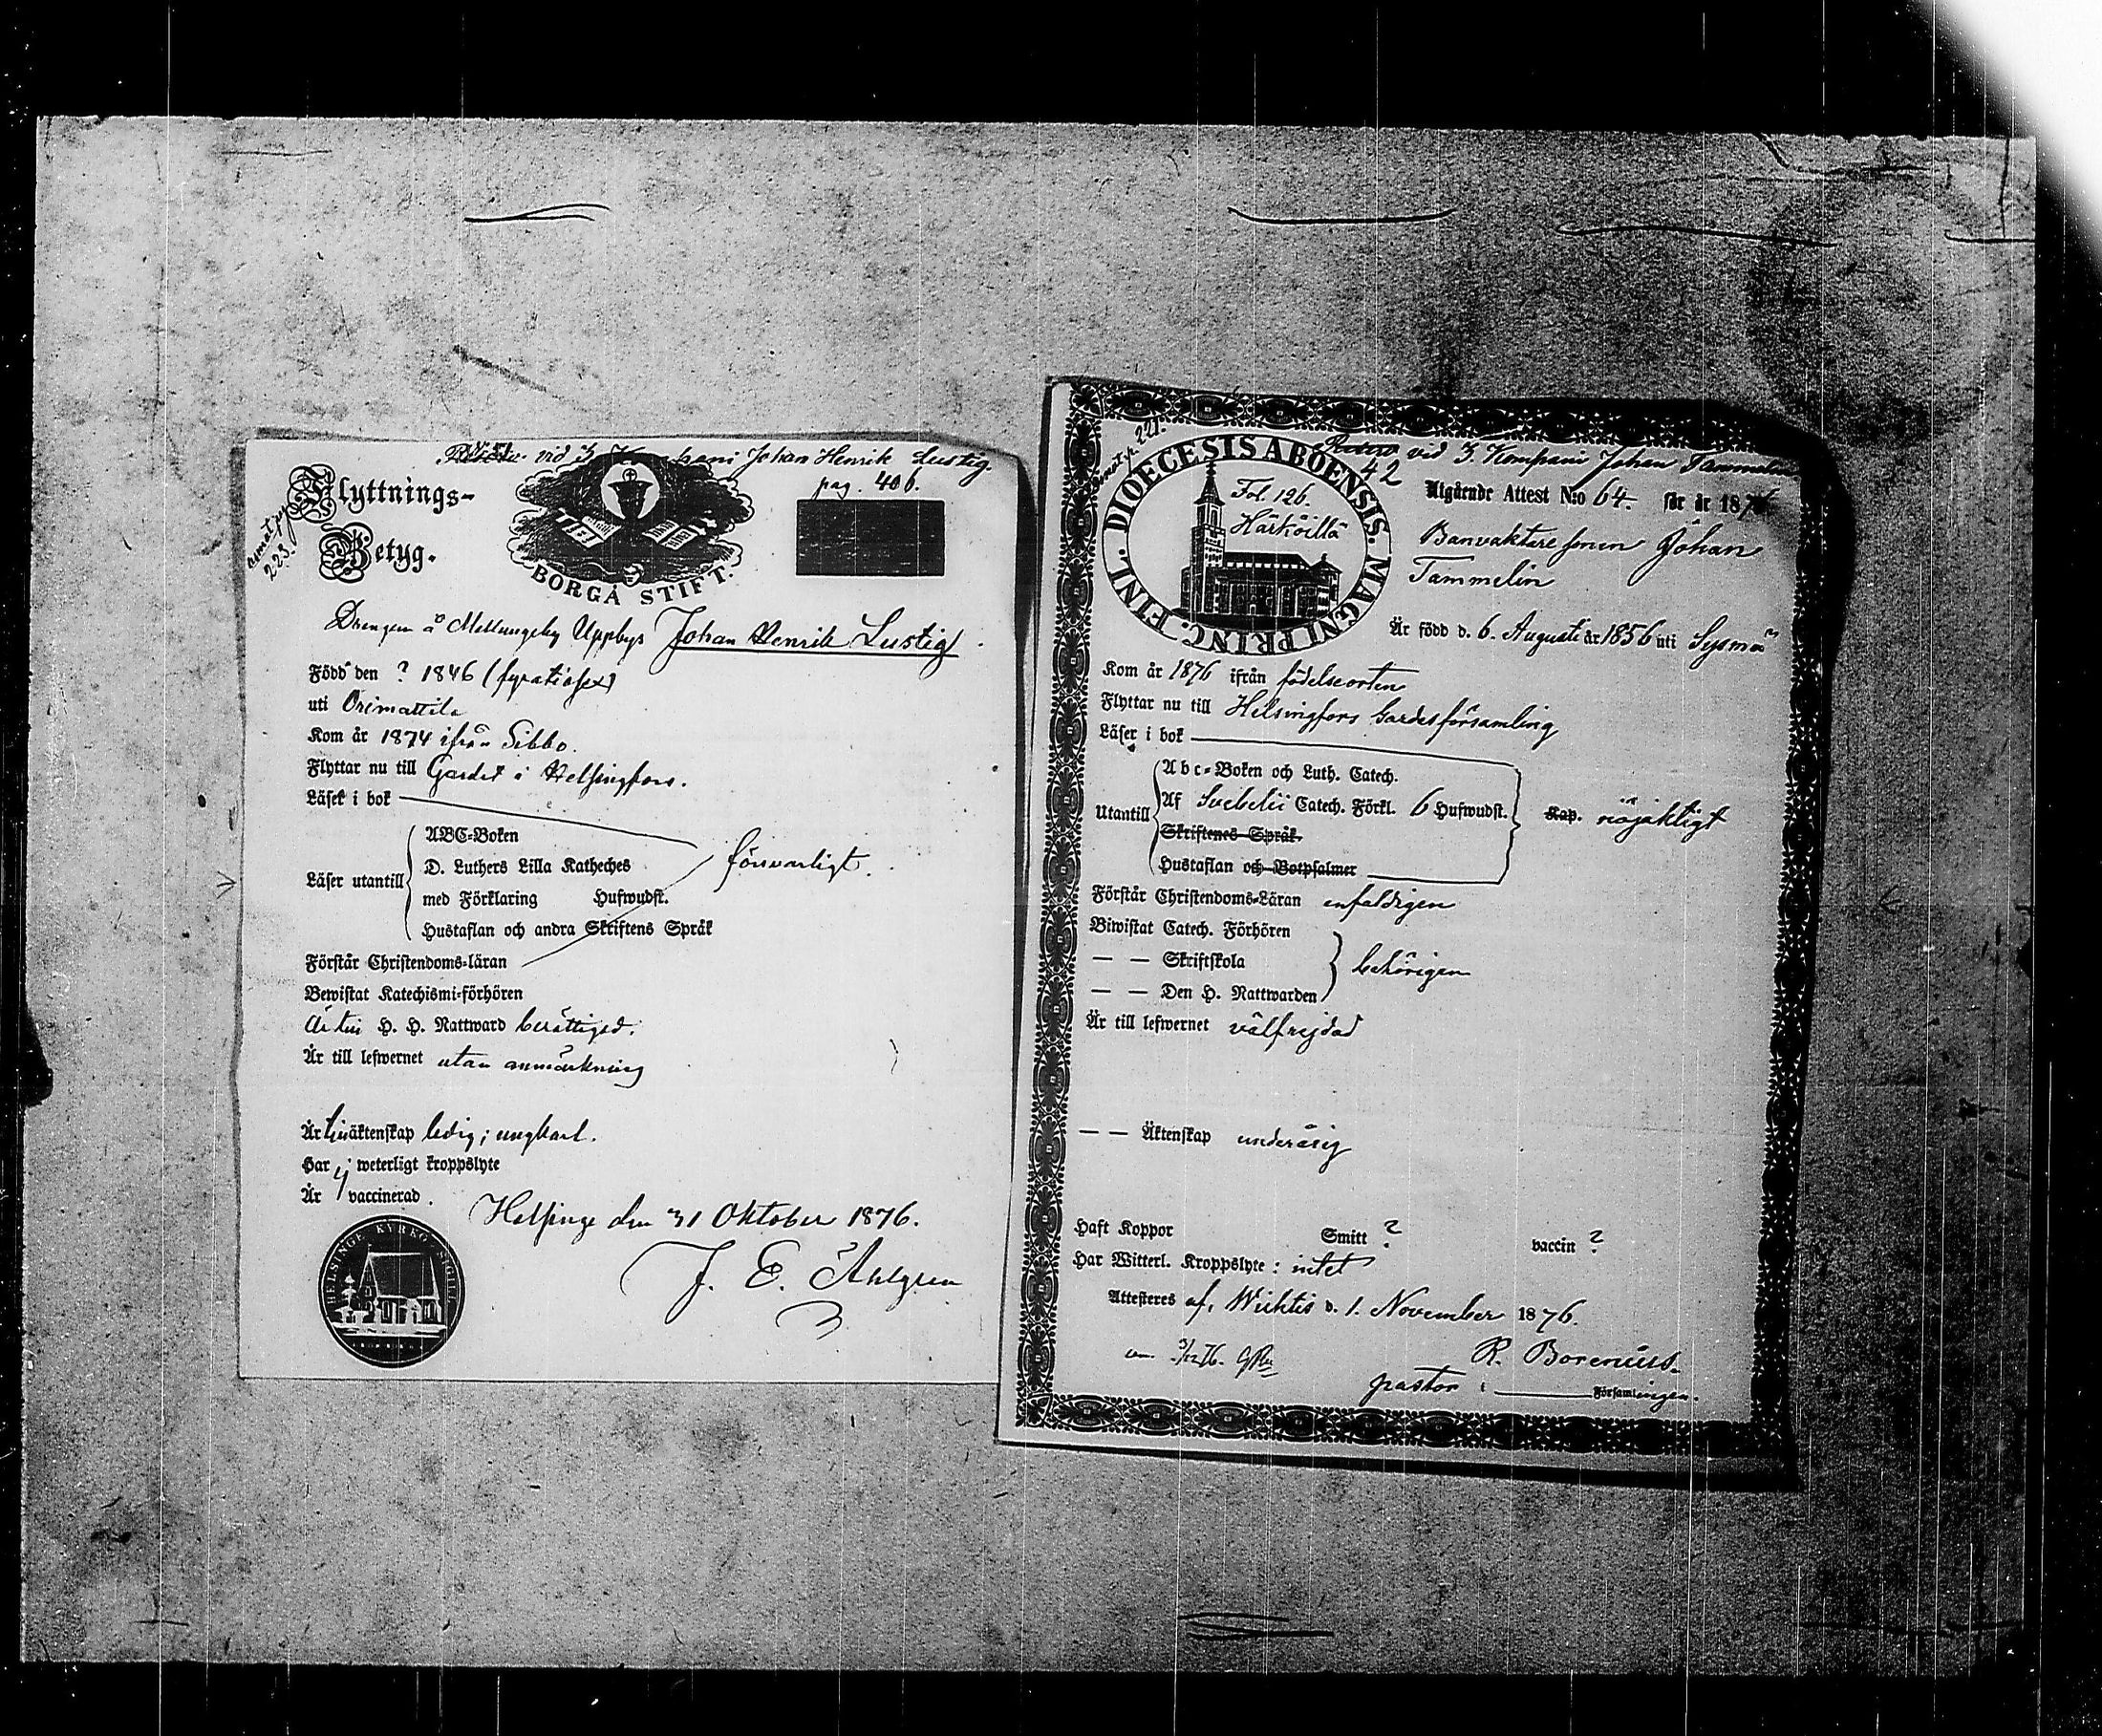 vid 3. Kompani Johan Henrik Lustig.
pag. 406.
Flyttnings-
Betyg.
223.
BORGÅ STIFT.
Drengen å Mellungsby Uppbys Johan Henrik Lustig.
Född den ? 1846 (fyratiosex)
uti Orimattila
Kom år 1874 ifrån Sibbo.
Flyttar nu till Gardet i Helsingfors.
Läser i bok
ABC-Boken
D. Luthers Lilla Katheches
Läser utantill
med Förklaring Hufwudst.
Hustaflan och andra Skriftens Språk
försvarligt.
Förstår Christendoms-läran
Bewistat Katechismi-förhören
Är till H. H. Nattward berättigad.
Är till lefwernet utan anmärkning
Är till äktenskap ledig; ungkarl.
Har ej weterligt kroppslyte
Är vaccinerad.
Helsinge den 31 Oktober 1876.
J. E. Åhlgren
HELSINGE KYRKO SIGILL
221.
Rekryt vid 3. Kompani Johan Tammelin
42
DIOECESIS ABOENSIS. MAGNI PRINC. FINL.
Fol. 126.
Härköilä
Utgående Attest N:o 64. för år 1876
Banvaktare sonen Johan
Tammelin
Är född d. 6. Augusti år 1856 uti Sysmä
Kom år 1876 ifrån födelseorten
Flyttar nu till Helsingfors Gardesförsamling
Läser i bok
Abc-Boken och Luth. Catech.
Utantill
Af Svebelii Catech. Förkl. 6 Hufwudst.
Kap. nöjaktigt
Skriftenes Språk.
Hustaflan och Botpsalmer
Förstår Christendoms-Läran enfaldigen
Biwistat Catech. Förhören
— — Skriftskola
behörigen
— — Den H. Nattwarden
Är till lefwernet välfrejdad
— — Äktenskap underårig
Haft Koppor Smitt ? vaccin ?
Har Witterl. Kroppslyte: intet
Attesteras af, Wichtis d. 1. November 1876.
R. Borenius.
pastor i Församlingen.